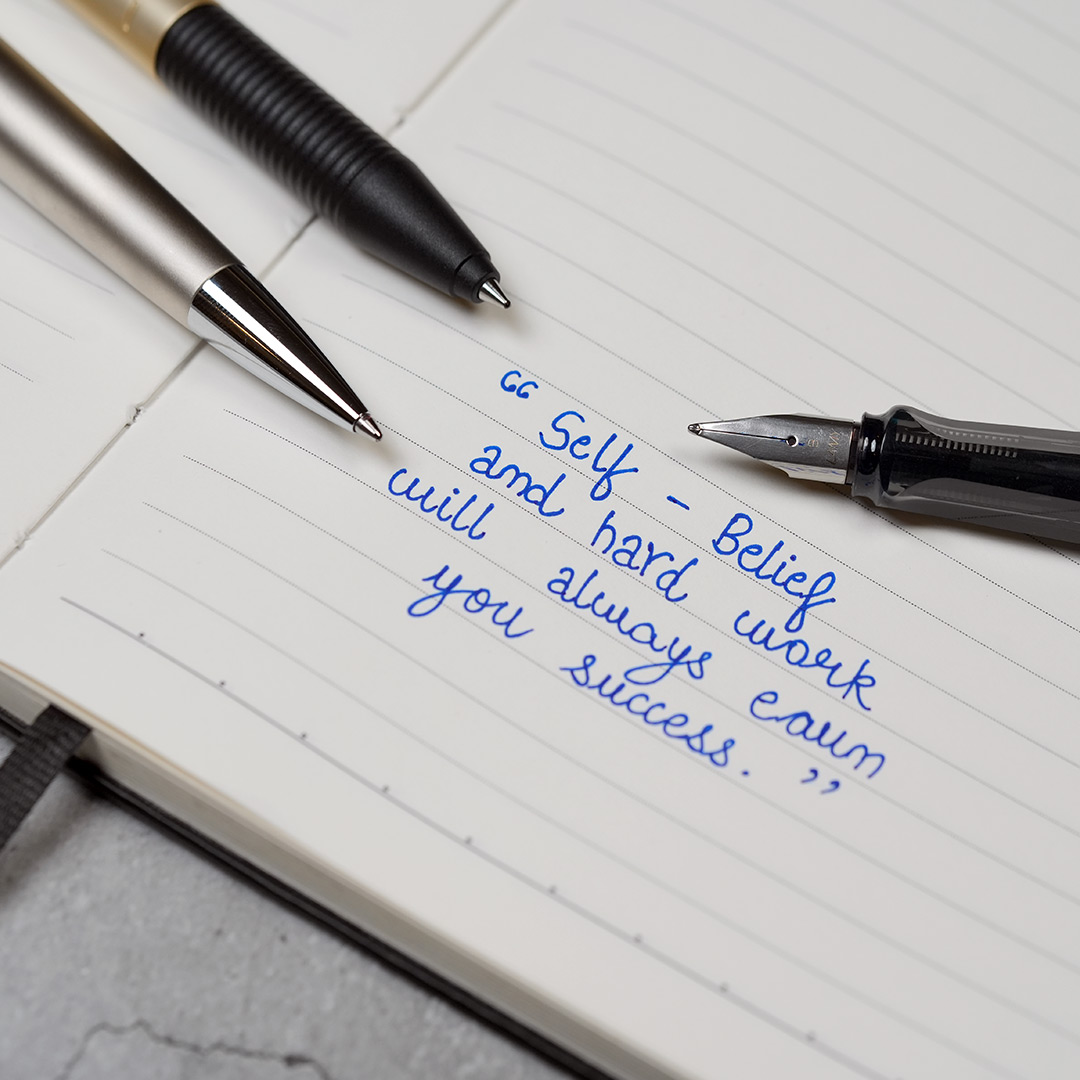 “ Self - Belief
and hard work
will always earn
you success. ”